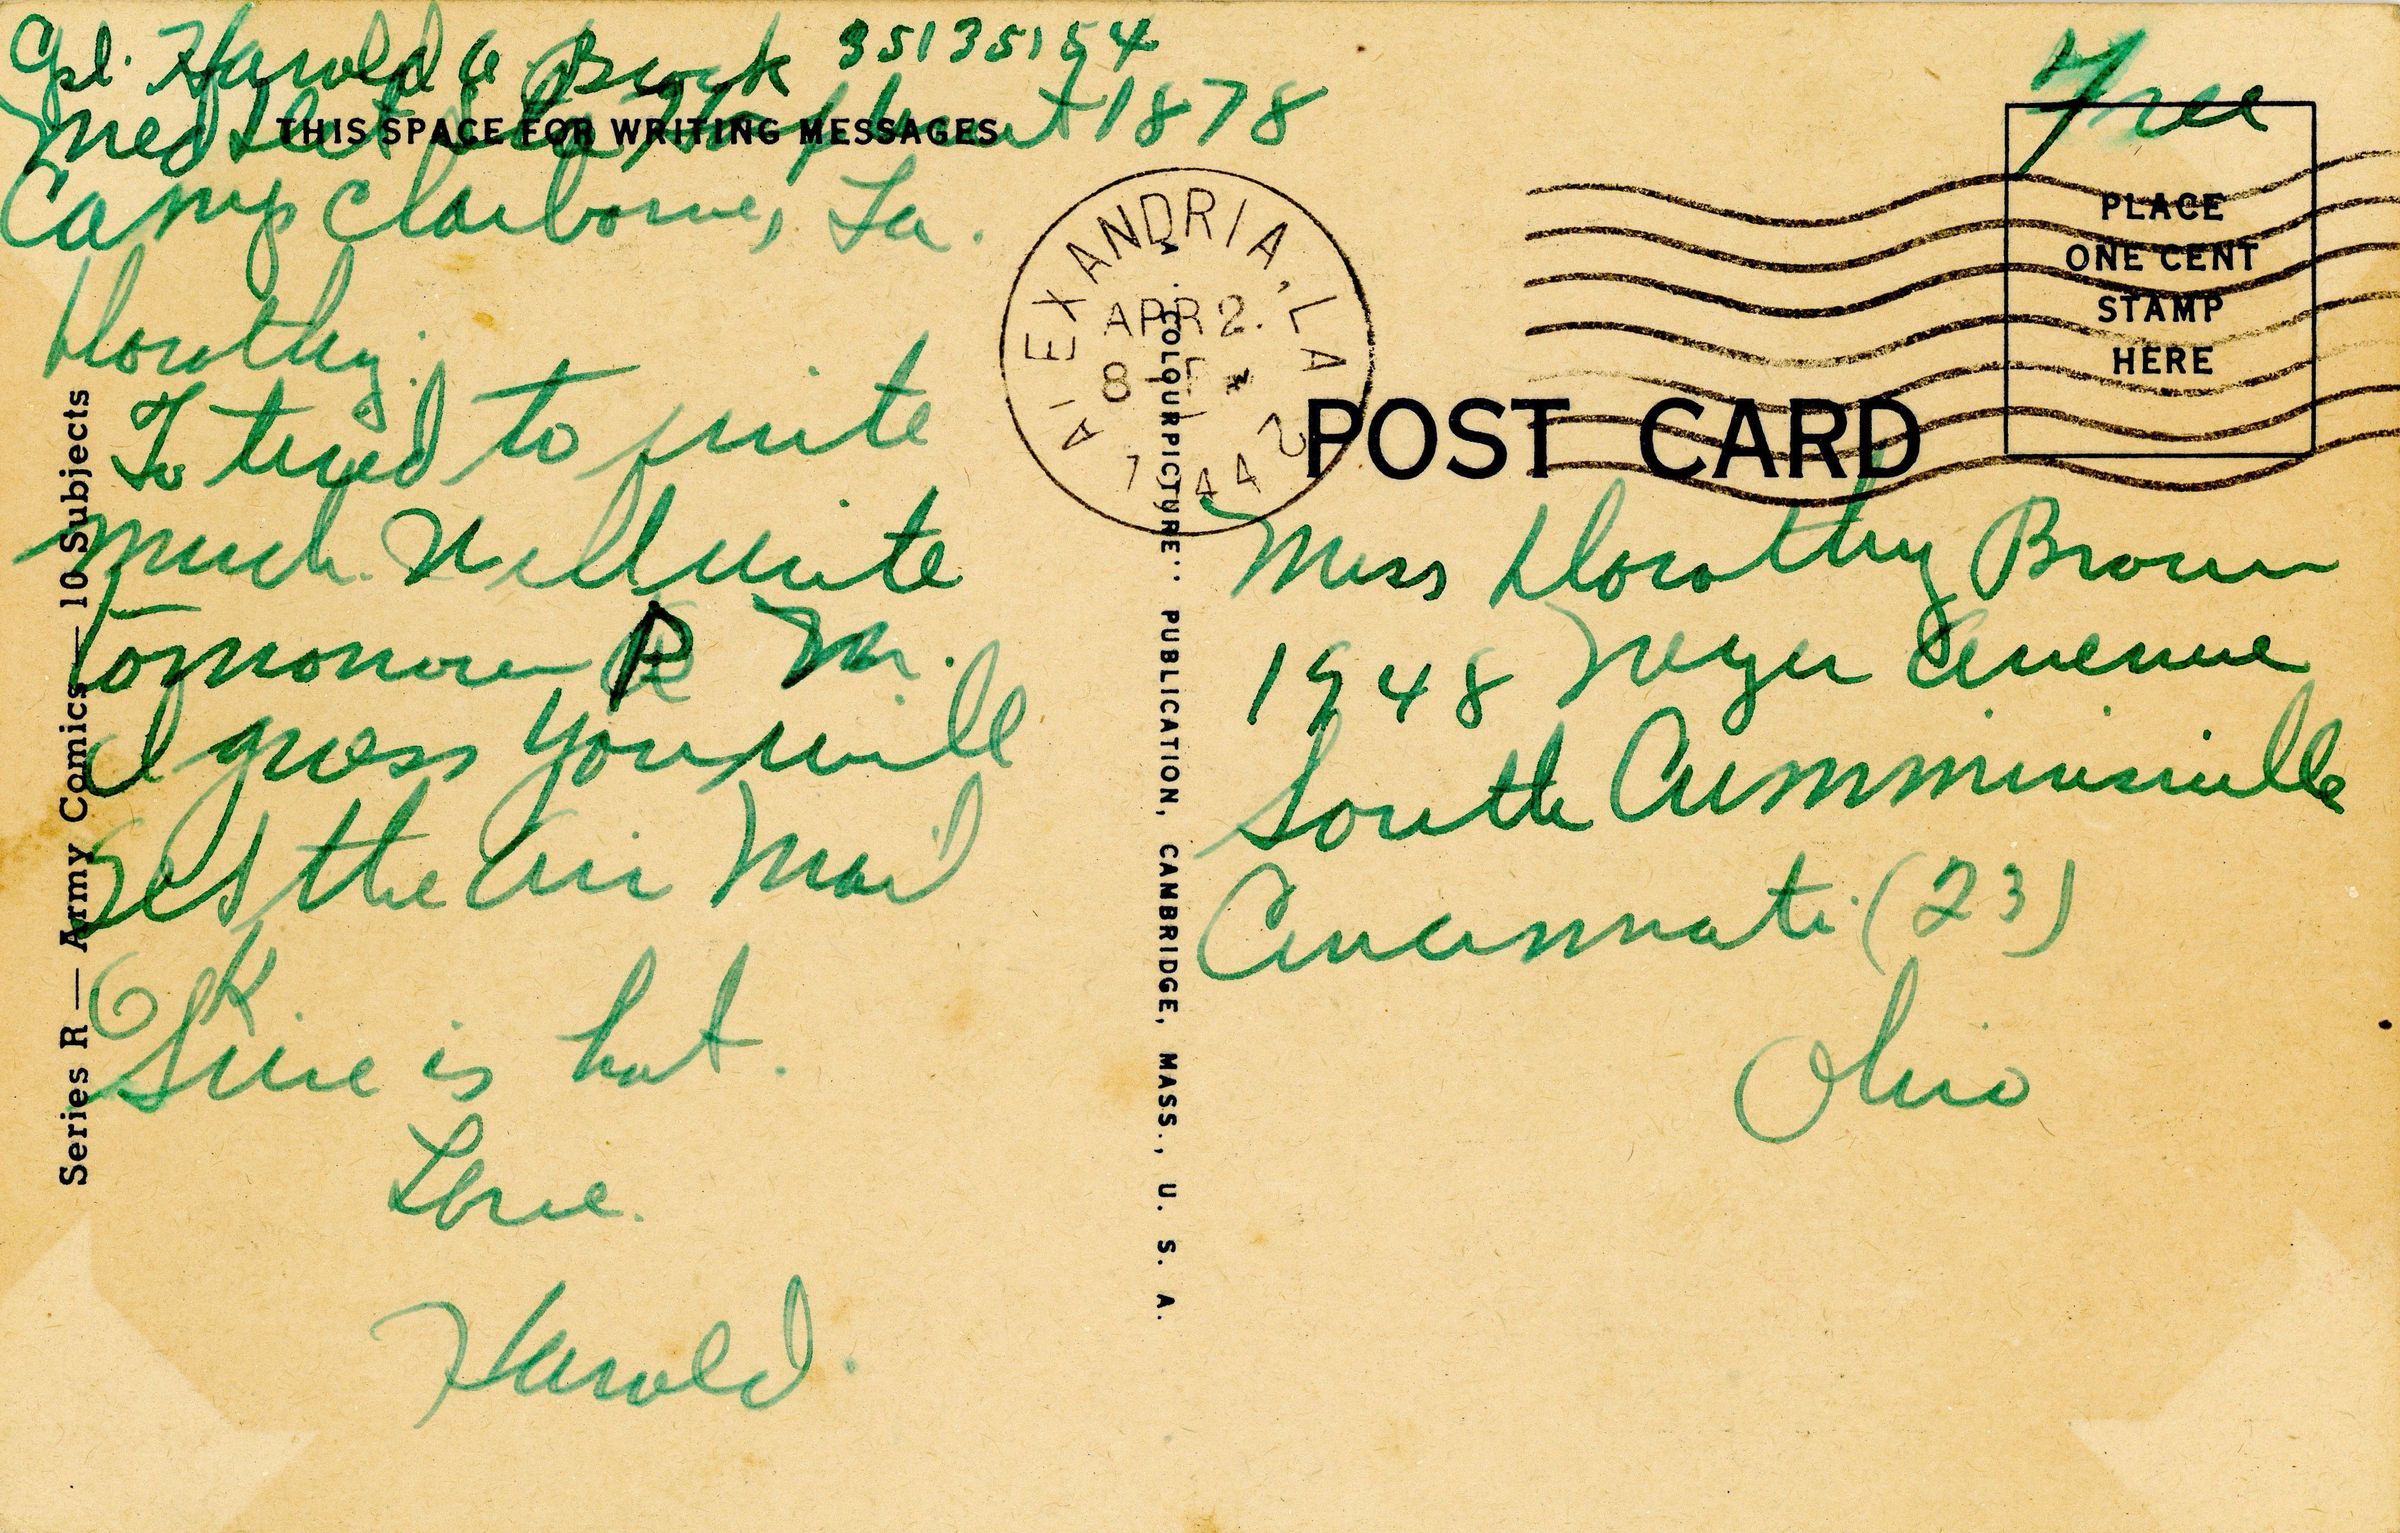 Cpl. Harold A Brock 35135154
Med Det 1878
THIS SPACE FOR WRITING MESSAGES
Camp Claiborne, La.
Dorothy:
To tired to write
much. Will write
tomorrow P M.
I guess you will
get the Air Mail
O K.
Sure is hot.
Love.
Harold.
Series R — Army Comics — 10 Subjects
ALEXANDRIA, LA
APR 2.
8
1944
A "COLOURPICTURE" PUBLICATION, CAMBRIDGE, MASS., U. S. A.
Free
PLACE
ONE CENT
STAMP
HERE
POST CARD
Miss Dorothy Brown
1948 Avenue
South Cumminsville
Cincinnati (23)
Ohio